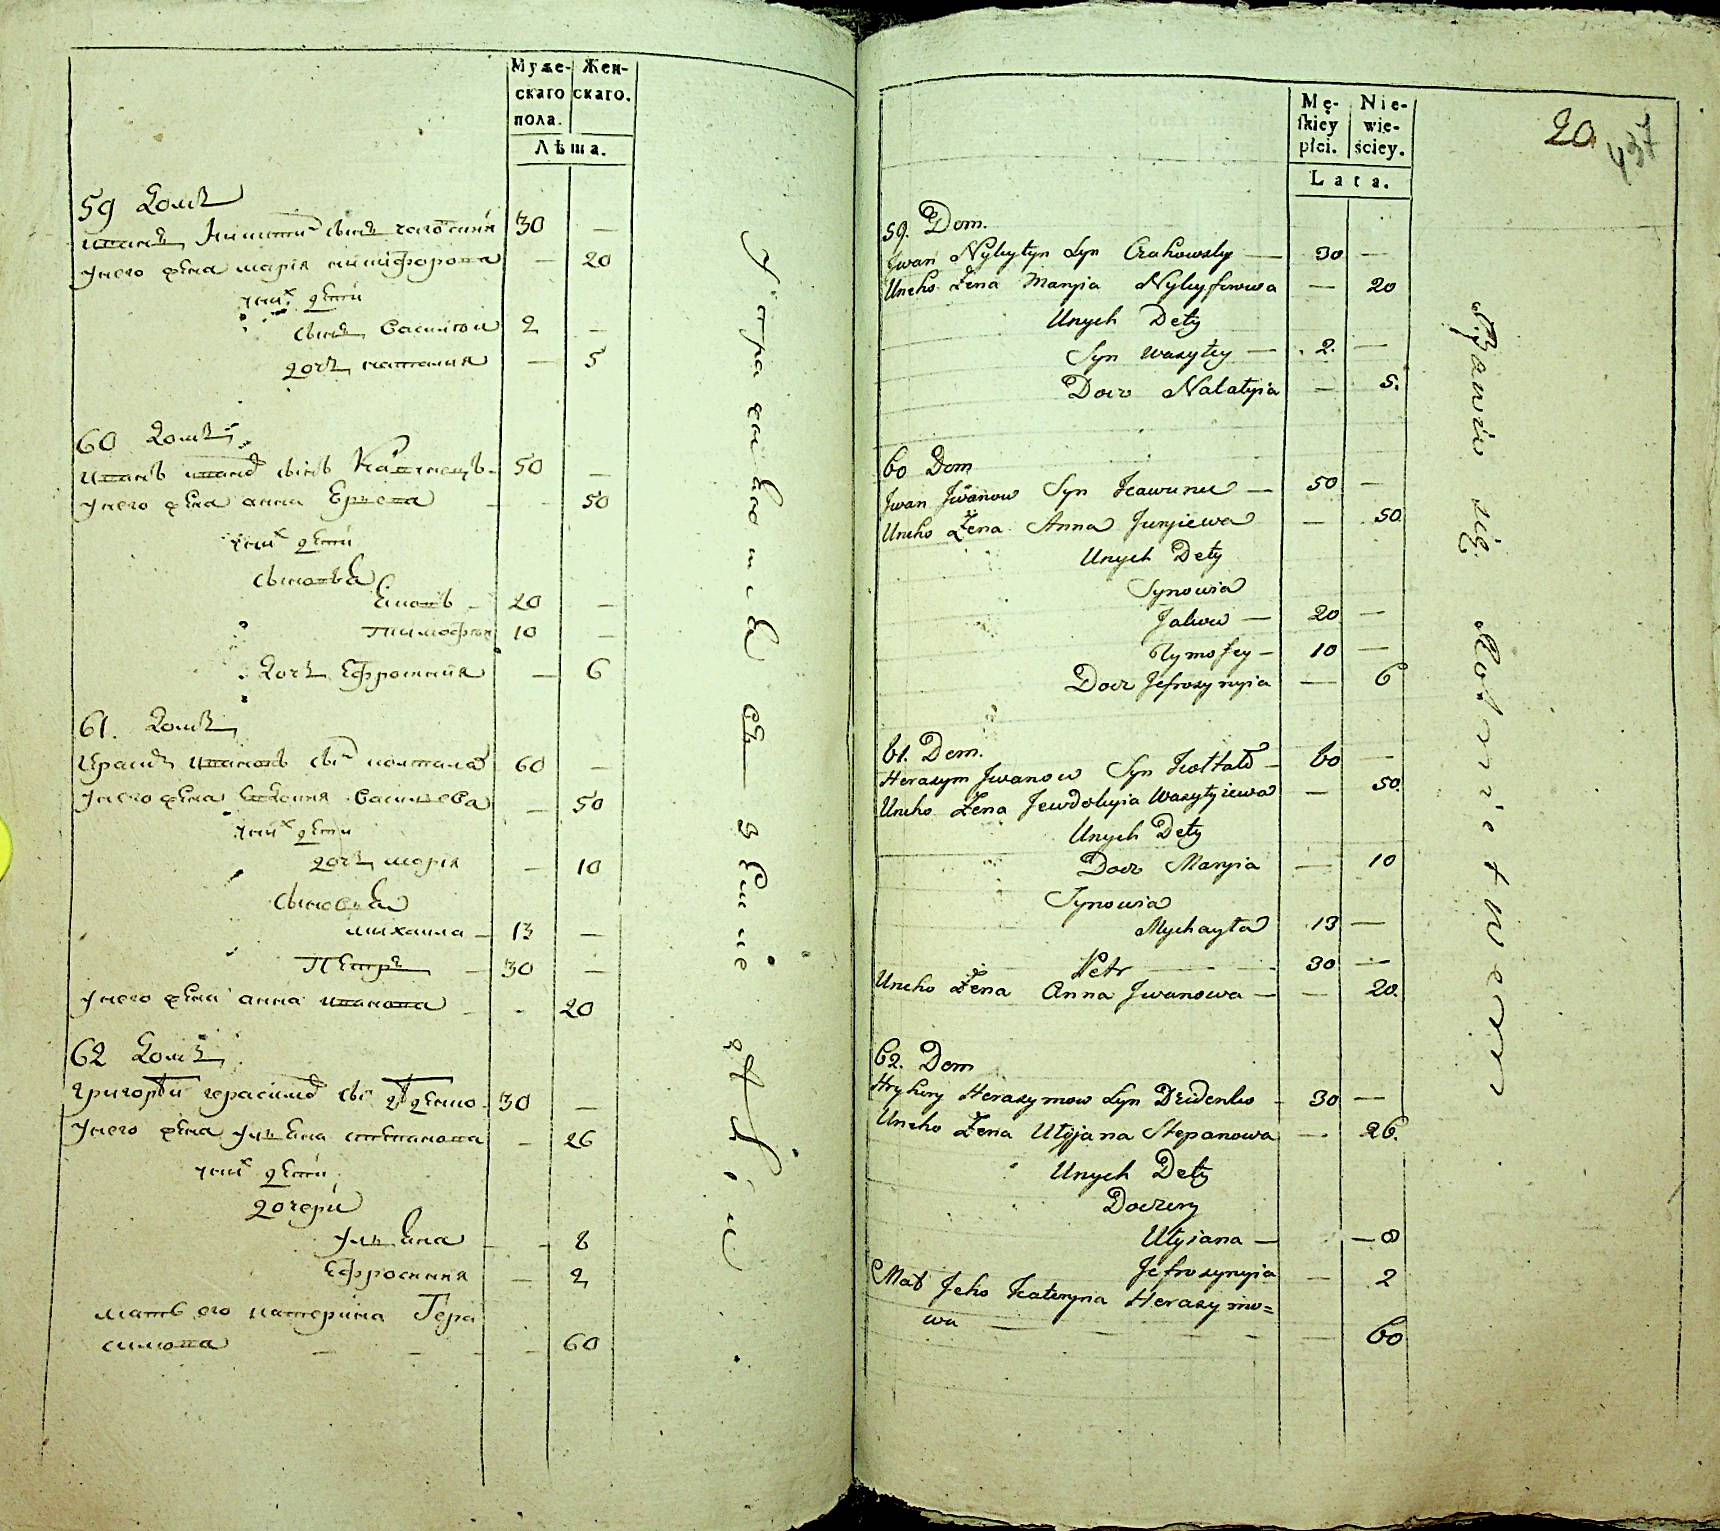 Муже- Жен-
скаго скаго.
пола.
Лѣта.
59 Домъ
Иванъ Никитинъ сынъ 30 —
У него жена Марія Никифорова — 20
У них дети
сынъ Василей 2 —
дочь Наталия — 5
60 Домъ
Иванъ Ивановъ сынъ 50 —
У него жена Анна — 50
У них дети
Сыновья
20 —
Тимофей 10 —
Дочь Ефросиния — 6
61. Домъ
Ивановъ сынъ 60 —
У него жена Васильева — 50
У них дети
дочь Марія — 10
Сыновья
Михаила 13 —
Петръ 30 —
У него жена Анна Иванова - 20
62 Домъ
Григорей Герасимов сынъ 30 —
У него жена Ульяна Степанова - 26
У них дети
дочери
Ульяна - 8
Ефросиния — 2
Мать его Катерина Гера
симова - 60
Упражняются въ земледѣліи.
Mę- Nie-
ſkiey wie-
płci. ściey.
Lata.
20
437
59. Dom.
Jwan Nykytyn Syn Czahowsky — 30 —
Uneho Żena Maryia Nykyforowa — 20
Unych Dety
Syn Wasyłey — 2. —
Docz Natałyia — 5.
60 Dom
Jwan Jwanow Syn — 50 —
Uneho Żena Anna Juryiewa — 50.
Unych Dety
Synowia
Jakow — 20 —
Tymofey — 10 —
Docz Jefrosynyia — 6
61. Dom.
Herasym Jwanow Syn Kołtało — 60 —
Uneho Żena Jewdokyia Wasyłyiewa — 50.
Unych Dety
Docz Maryia — 10
Synowia
Mychayła 13 —
Petr 30 —
Uneho Żena Anna Jwanowa — — 20.
62. Dom
Hryhory Herasymow Syn Dzidenko - 30 —
Uneho Żena Ulyjana Stepanowa — 26.
Unych Dety
Doczery
Ulyiana — — 8
Jefrosynyia — 2
Mat Jeho Kateryna Herasymo=
wa — — 60
Bawią się Rolnictwem